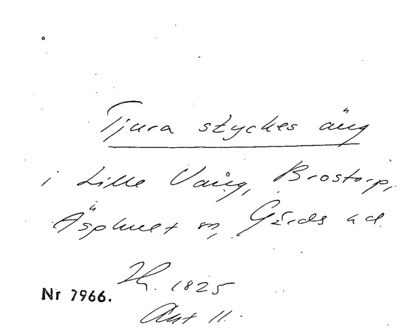 Tjura styckes äng
i Lille Vång, Brostorp,
Äsphult sn, Gärds hd.
1825
Nr 7966.
Akt 11.